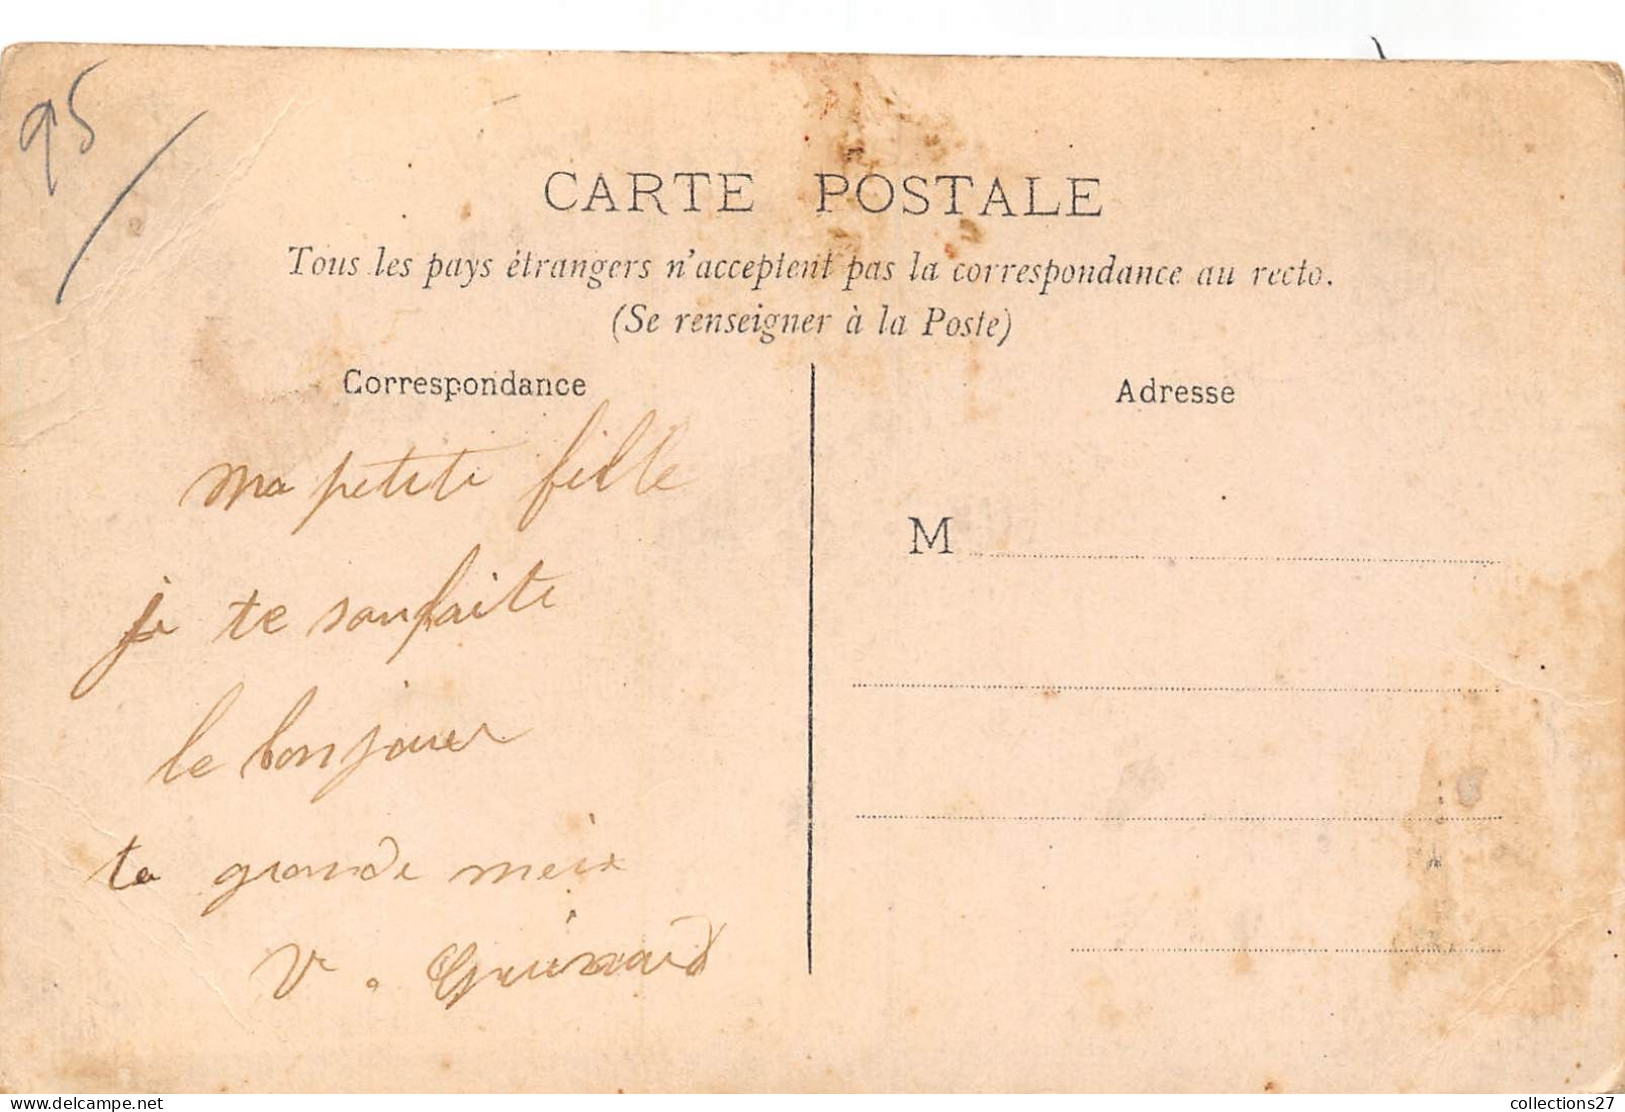 95
CARTE POSTALE
Tous les pays étrangers n'acceptent pas la correspondance au recto.
(Se renseigner à la Poste)
Correspondance
ma petite fille
je te souhaite
le bonjour
ta grande meire
V. Guinard
Adresse
M
collections27